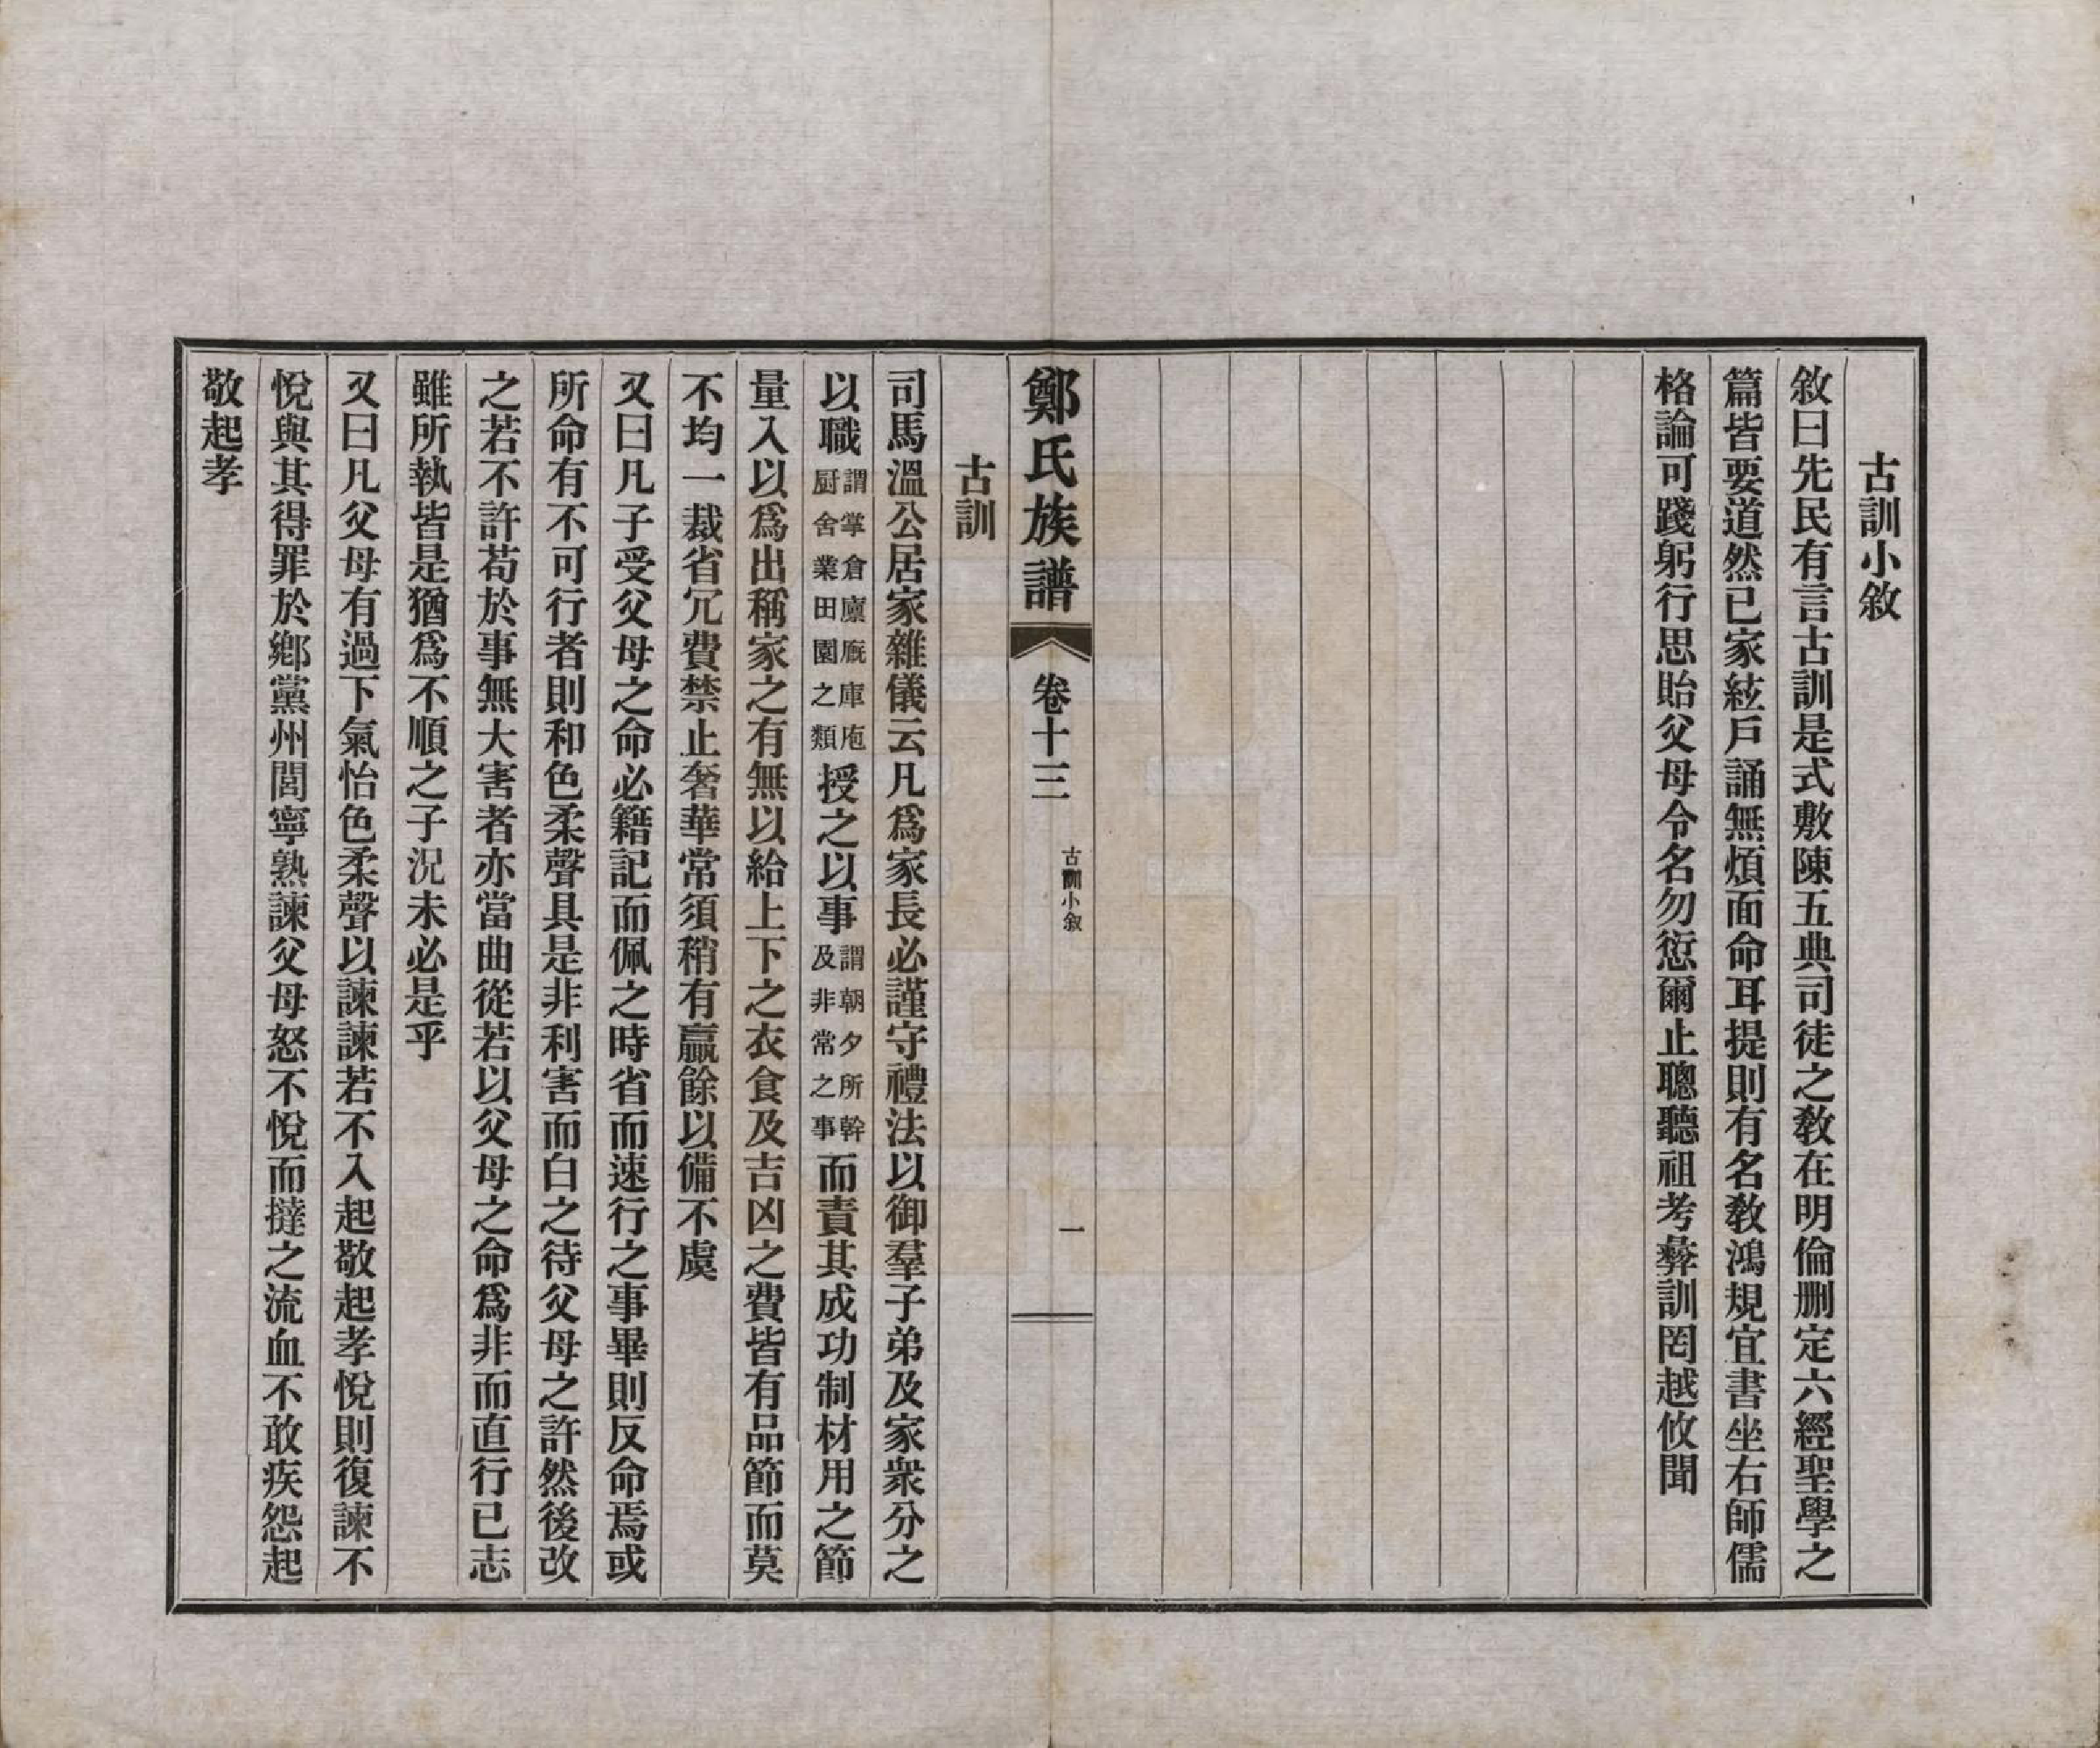 古訓小敘
敘曰先民有言古訓是式敷陳五典司徒之敎在明倫刪定六經聖學之
篇皆要道然已家絃戶誦無煩面命耳提則有名敎鴻規宜書坐右師儒
格論可踐躬行思貽父母令名勿愆爾止聰聽祖考彝訓罔越攸聞
鄭氏族譜 卷十三 古訓小敘 一
古訓
司馬溫公居家雜儀云凡爲家長必謹守禮法以御羣子弟及家衆分之
以職謂掌倉廩廐庫庖厨舍業田園之類授之以事謂朝夕所幹及非常之事而責其成功制材用之節
量入以爲出稱家之有無以給上下之衣食及吉凶之費皆有品節而莫
不均一裁省冗費禁止奢華常須稍有贏餘以備不虞
又曰凡子受父母之命必籍記而佩之時省而速行之事畢則反命焉或
所命有不可行者則和色柔聲具是非利害而白之待父母之許然後改
之若不許苟於事無大害者亦當曲從若以父母之命爲非而直行已志
雖所執皆是猶爲不順之子況未必是乎
又曰凡父母有過下氣怡色柔聲以諫諫若不入起敬起孝悅則復諫不
悅與其得罪於鄕黨州閭寧熟諫父母怒不悅而撻之流血不敢疾怨起
敬起孝